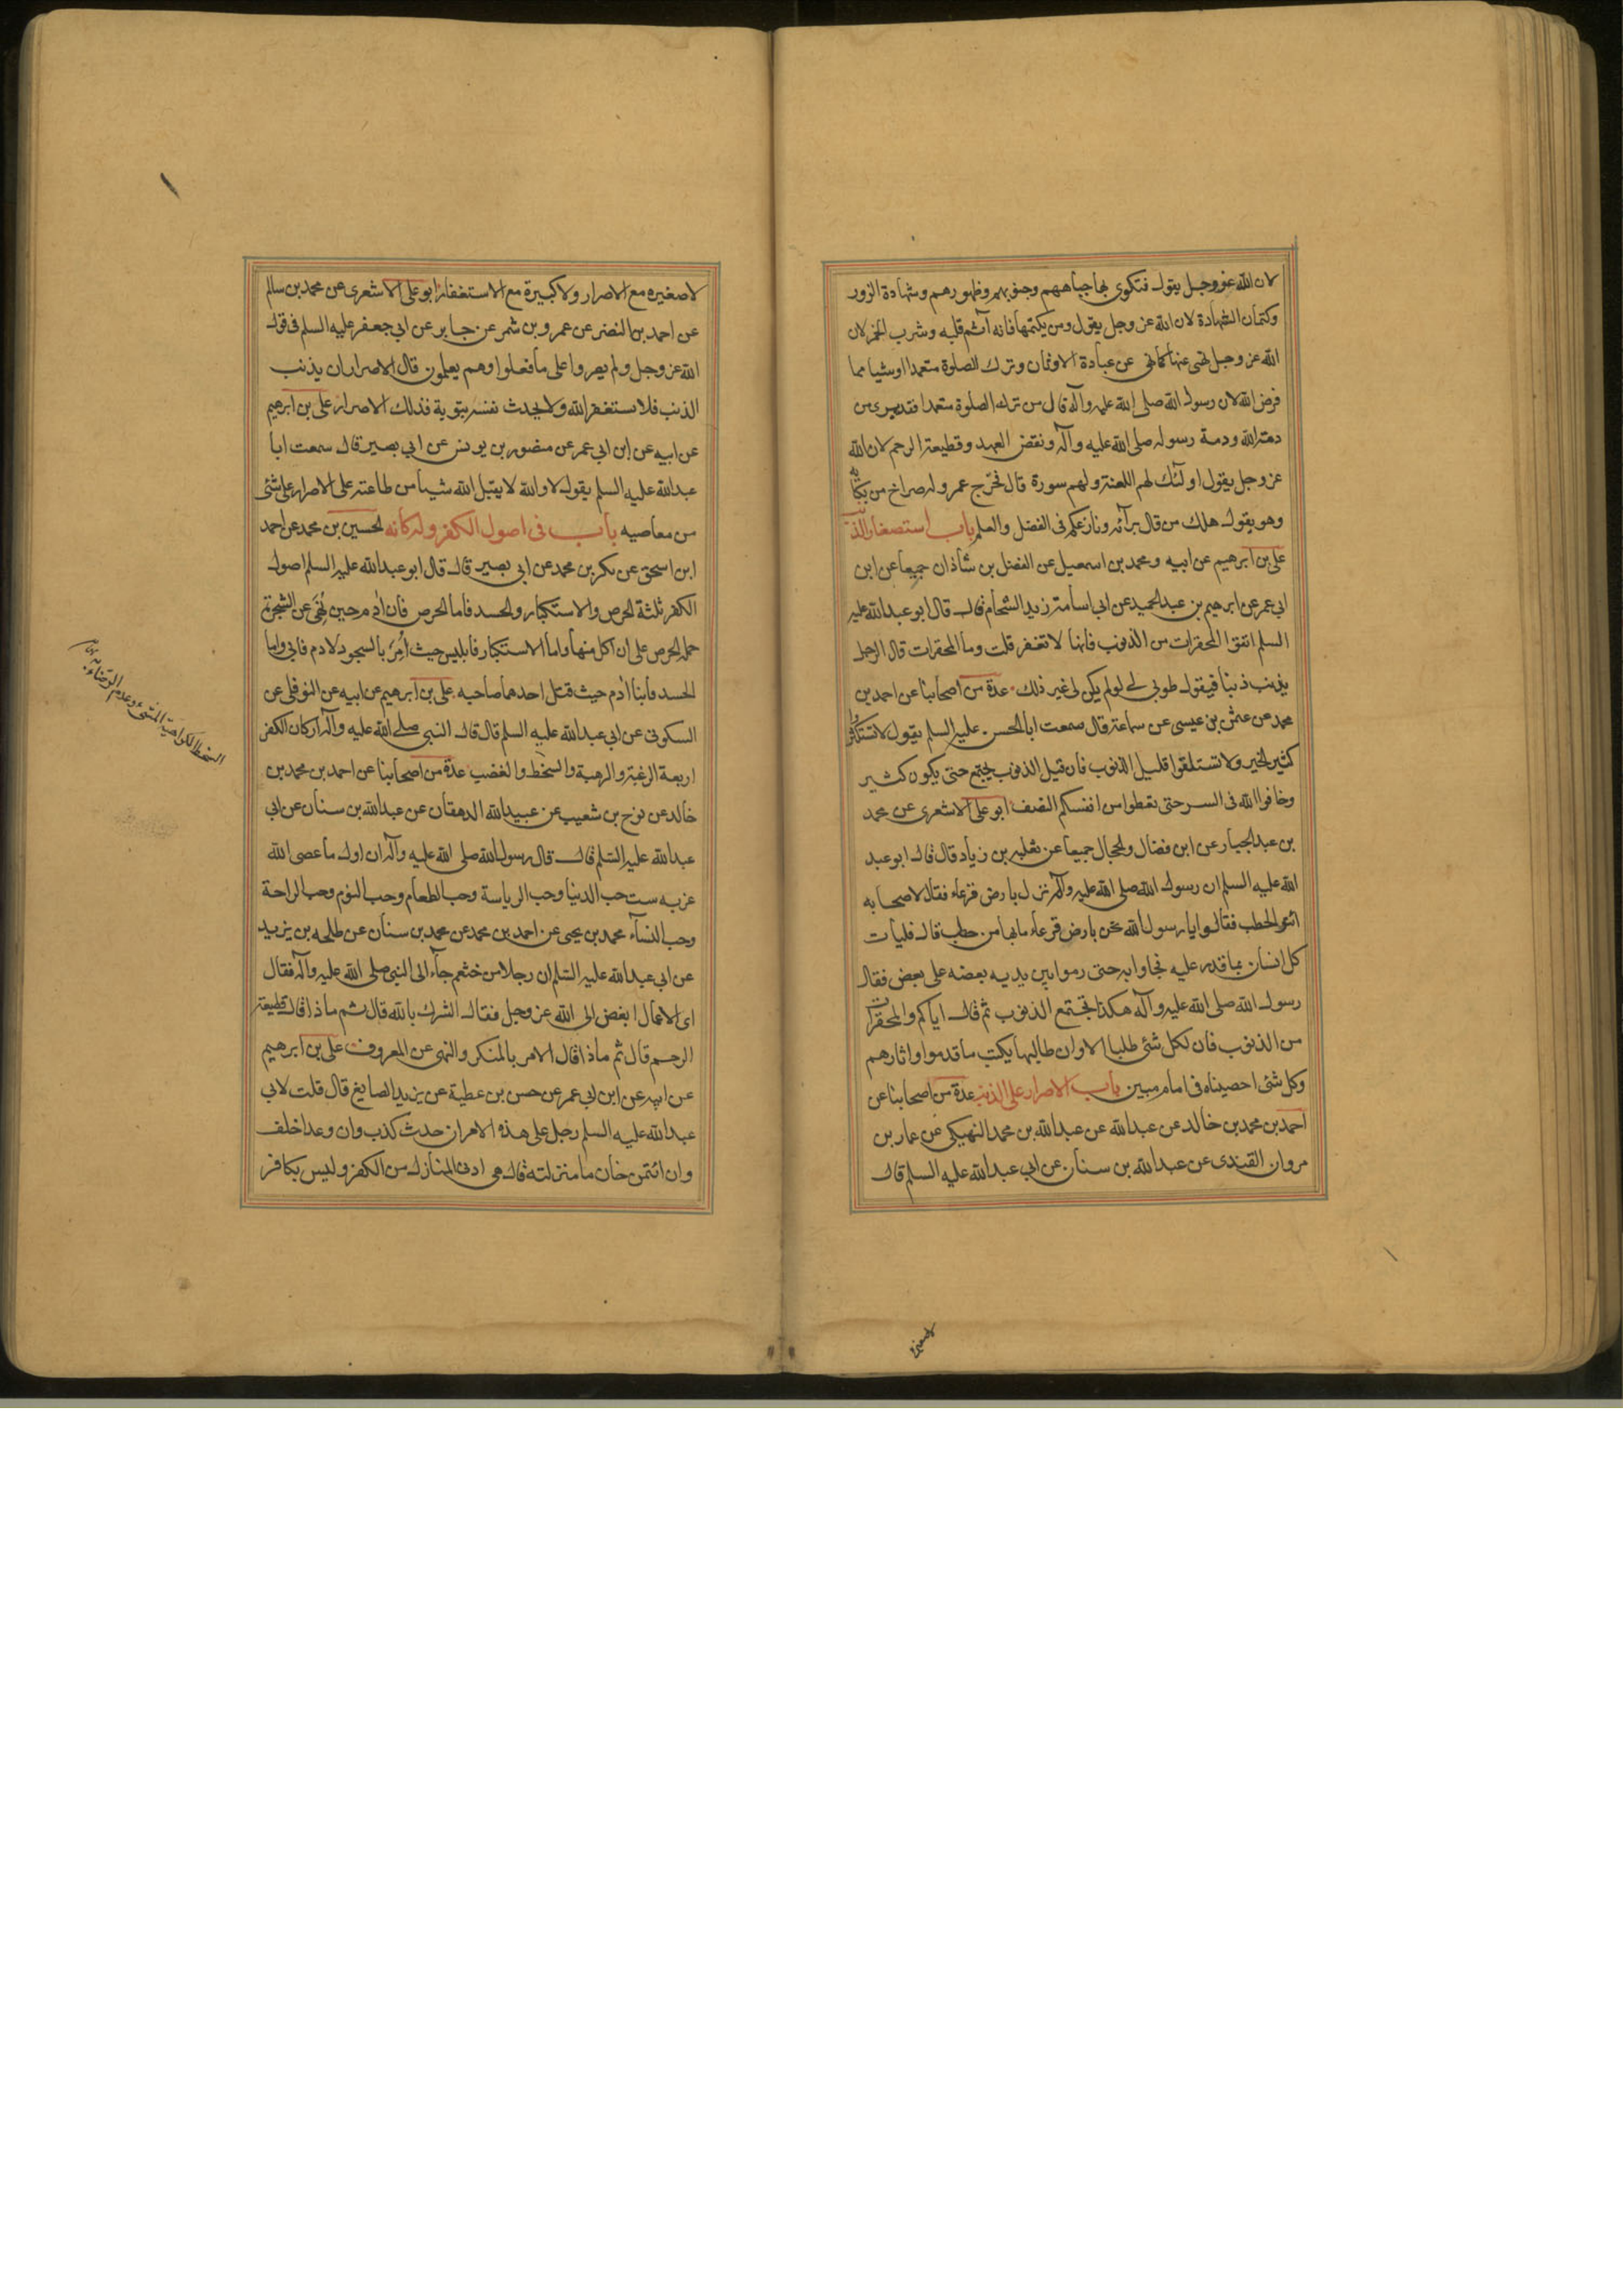 لان الله عز وجل يقول فتكوى بها جباههم وجنوبهم وظهورهم وشهادة الزور
وكتمان الشهادة لان الله عز وجل يقول ومن يكتمها فانه آثم قلبه وشرب الخمر لان
الله عز وجل نهى عنها كما نهى عن عبادة الاوثان وترك الصلوة متعمدا او شيئا مما
فرض الله لان رسول الله صلى الله عليه وآله قال من ترك الصلوة متعمدا فقد برئ من
ذمة الله وذمة رسوله صلى الله عليه وآله ونقض العهد وقطيعة الرحم لان الله
عز وجل يقول اولئك لهم اللعنة ولهم سورة قال فخرج عمرو له صراخ من بكائه
وهو يقول هلك من قال برأيه ونازعكم فى الفضل والعلم باب استصغار الذنب
على بن ابرهيم عن ابيه ومحمد بن اسمعيل عن الفضل بن شاذان جميعا عن ابن
ابى عمر عن ابرهيم بن عبد الحميد عن ابى اسامة زيد الشحام قال قال ابو عبد الله عليه
السلم اتقوا المحقرات من الذنوب فانها لا تغفر قلت وما المحقرات قال الرجل
يذنب ذنبا فيقول طوبى لى لو لم يكن لى غير ذلك عدة من اصحابنا عن احمد بن
محمد عن عثمن بن عيسى عن سماعة قال سمعت ابا الحسن عليه السلم يقول لا تستكثروا
كثير الخير ولا تستقلوا قليل الذنوب فان قليل الذنوب يجتمع حتى يكون كثير
وخافوا الله فى السر حتى تعطوا من انفسكم النصف ابو على الاشعرى عن محمد
بن عبد الجبار عن ابن فضال والحجال جميعا عن ثعلبه بن زياد قال قال ابو عبد
الله عليه السلم ان رسول الله صلى الله عليه وآله نزل بارض قرعاء فقال لاصحابه
ائتوا بحطب فقالوا يا رسول الله نحن بارض قرعاء ما بها من حطب قال فليأت
كل انسان بما قدر عليه فجاوا به حتى رموا بين يديه بعضه على بعض فقال
رسول الله صلى الله عليه وآله هكذا تجتمع الذنوب ثم قال اياكم والمحقرات
من الذنوب فان لكل شئ طلبا الا وان طالبها يكتب ما قدموا واثارهم
وكل شئ احصيناه فى امام مبين باب الاصرار على الذنب عدة من اصحابنا عن
احمد بن محمد بن خالد عن عبد الله عن عبد الله بن محمد النهيكى عن عمار بن
مروان القندى عن عبد الله بن سنان عن ابى عبد الله عليه السلم قال
لا صغيره
لا صغيره مع الاصرار ولا كبيرة مع الاستغفار ابو على الاشعرى عن محمد بن سالم
عن احمد بن النضر عن عمرو بن شمر عن جابر عن ابى جعفر عليه السلم فى قول
الله عز وجل ولم يصروا على ما فعلوا وهم يعلمون قال الاصرار ان يذنب
الذنب فلا يستغفر الله ولا يحدث نفسه بتوبة فذلك الاصرار على بن ابرهيم
عن ابيه عن ابن ابى عمر عن منصور بن يونس عن ابى بصير قال سمعت ابا
عبد الله عليه السلم يقول لا والله لا يقبل الله شيئا من طاعته على الاصرار على شئ
من معاصيه باب فى اصول الكفر واركانه الحسين بن محمد عن احمد
ابن اسحق عن بكر بن محمد عن ابى بصير قال قال ابو عبد الله عليه السلم اصول
الكفر ثلثة الحرص والاستكبار والحسد فاما الحرص فان ادم حين نُهِىَ عن الشجرة
حمله الحرص على ان اكل منها واما الاستكبار فابليس حيث اُمِرَ بالسجود لادم فابى واما
الحسد فابنا ادم حيث قتل احدهما صاحبه على بن ابرهيم عن ابيه عن النوفلى عن
السكونى عن ابى عبد الله عليه السلم قال قال النبى صلى الله عليه وآله اركان الكفر
اربعة الرغبة والرهبة والسخط والغضب عدة من اصحابنا عن احمد بن محمد بن
خالد عن نوح بن شعيب عن عبيد الله الدهقان عن عبد الله بن سنان عن ابى
عبد الله عليه السلم قال قال رسول الله صلى الله عليه وآله ان اول ما عصى الله
عز به ست حب الدنيا وحب الرياسة وحب الطعام وحب النوم وحب الراحة
وحب النساء محمد بن يحيى عن احمد بن محمد عن محمد بن سنان عن طلحه بن يزيد
عن ابى عبد الله عليه السلم ان رجلا من خثعم جاء الى النبى صلى الله عليه وآله فقال
اى الاعمال ابغض الى الله عز وجل فقال الشرك بالله قال ثم ماذا قال قطيعة
الرحم قال ثم ماذا قال الامر بالمنكر والنهى عن المعروف على بن ابرهيم
عن ابيه عن ابن ابى عمر عن حسن بن عطية عن يزيد الصايغ قال قلت لابى
عبد الله عليه السلم رجل على هذه الامر ان حدث كذب وان وعد اخلف
وان ائتمن خان ما منزلته قال هى ادنى المنازل من الكفر وليس بكافر
السخط الكراهية للشئ وعدم الرضاء به